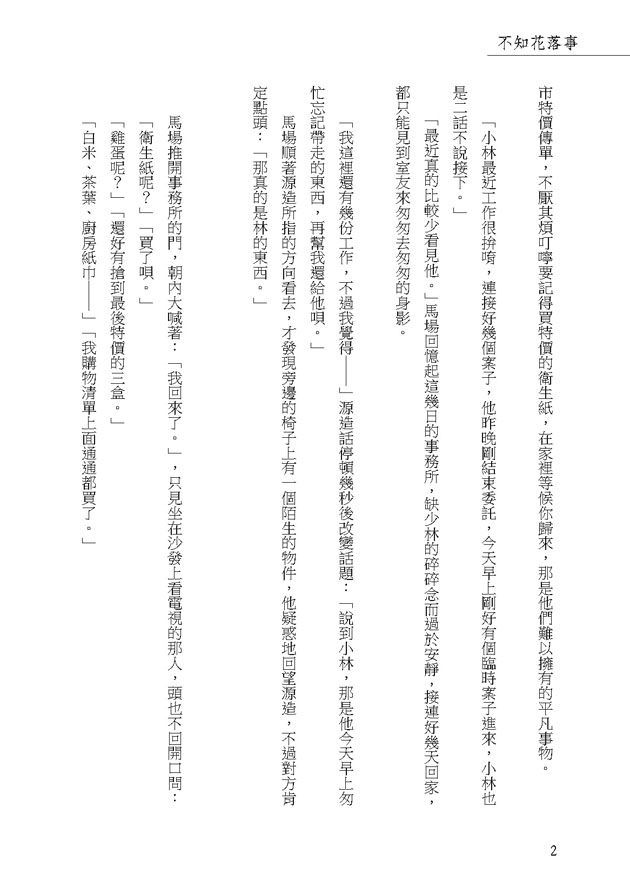 不知花落事
市特價傳單，不厭其煩叮嚀要記得買特價的衛生紙，在家裡等候你歸來，那是他們難以擁有的平凡事物。
「小林最近工作很拚唷，連接好幾個案子，他昨晚剛結束委託，今天早上剛好有個臨時案子進來，小林也
是二話不說接下。」
「最近真的比較少看見他。」馬場回憶起這幾日的事務所，缺少林的碎碎念而過於安靜，接連好幾天回家，
都只能見到室友來匆匆去匆匆的身影。
「我這裡還有幾份工作，不過我覺得——」源造話停頓幾秒後改變話題：「說到小林，那是他今天早上匆
忙忘記帶走的東西，再幫我還給他唄。」
馬場順著源造所指的方向看去，才發現旁邊的椅子上有一個陌生的物件，他疑惑地回望源造，不過對方肯
定點頭：「那真的是林的東西。」
馬場推開事務所的門，朝內大喊著：「我回來了。」，只見坐在沙發上看電視的那人，頭也不回開口問：
「衛生紙呢？」「買了唄。」
「雞蛋呢？」「還好有搶到最後特價的三盒。」
「白米、茶葉、廚房紙巾——」「我購物清單上面通通都買了。」
2